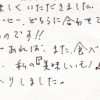 味しくいただきました。
ーヒー、どちらに合わせて
のです!!
あれば、また、食べ
、私の『美味しいモノ』
入りしました。